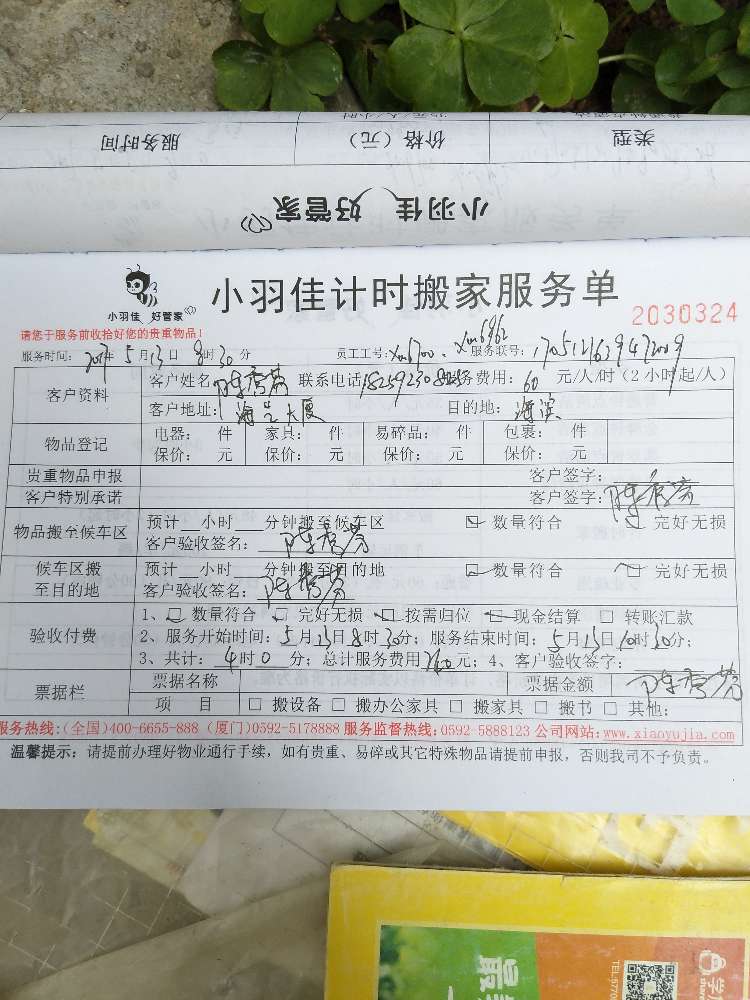 类型 价格（元） 服务时间
小羽佳 好管家
小羽佳 好管家
小羽佳计时搬家服务单
2030324
请您于服务前收拾好您的贵重物品！
服务时间：2017年5月13日8时30分 员工工号：xm6700、xm6962 服务联号：
客户资料 客户姓名：陈秀芳 联系电话 服务费用：60元/人/时（2小时起/人）
客户地址：海光大厦 目的地：海滨
物品登记 电器： 件 家具： 件 易碎品： 件 包裹： 件
保价： 元 保价： 元 保价： 元 保价： 元
贵重物品申报 客户签字：
客户特别承诺 客户签字：陈秀芳
物品搬至候车区 预计 小时 分钟搬至候车区 数量符合 完好无损
客户验收签名：陈秀芳
候车区搬至目的地 预计 小时 分钟搬至目的地 数量符合 完好无损
客户验收签名：陈秀芳
验收付费 1、 数量符合 完好无损 按需归位 现金结算 转账汇款
2、服务开始时间：5月13日8时30分；服务结束时间：5月13日10时30分；
3、共计：4时0分；总计服务费用240元；4、客户验收签字：陈秀芳
票据栏 票据名称 票据金额
项 目 搬设备 搬办公家具 搬家具 搬书 其他：
服务热线:(全国)400-6655-888 (厦门)0592-5178888 服务监督热线:0592-5888123 公司网站:www.xiaoyujia.com
温馨提示：请提前办理好物业通行手续，如有贵重、易碎或其它特殊物品请提前申报，否则我司不予负责。